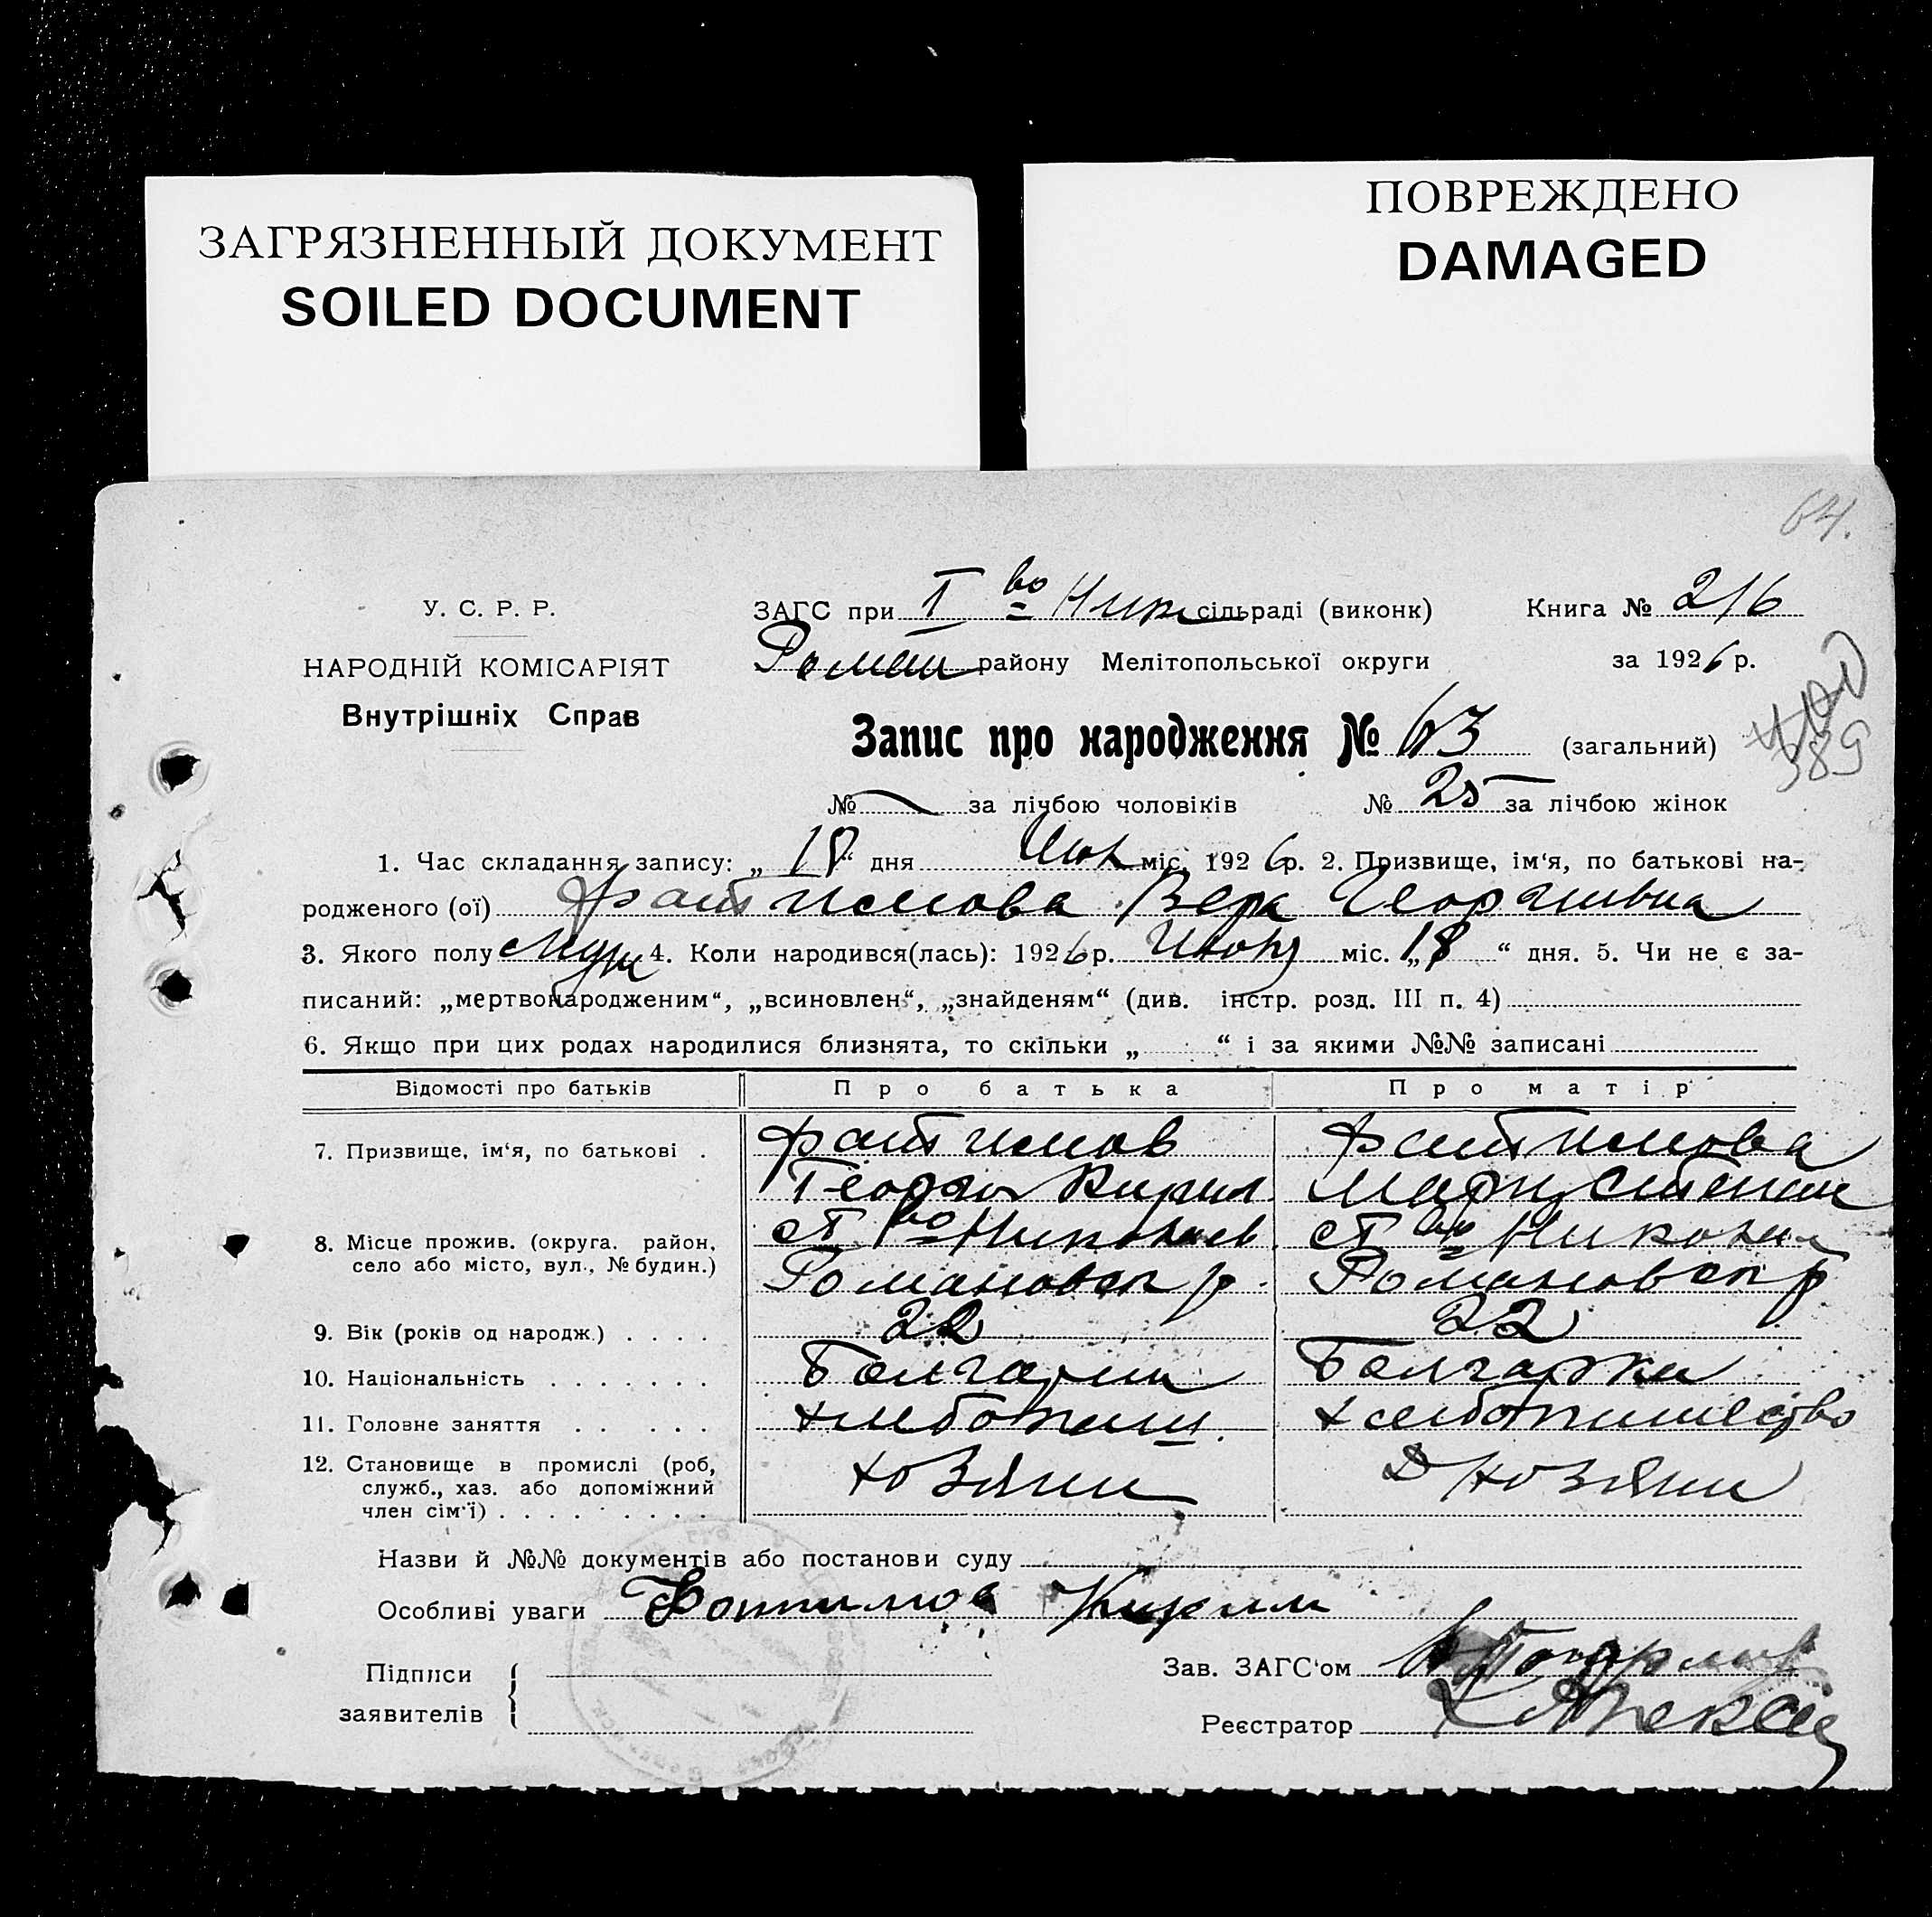 ЗАГРЯЗНЕННЫЙ ДОКУМЕНТ
SOILED DOCUMENT
ПОВРЕЖДЕНО
DAMAGED
64.
У. С. Р. Р.
НАРОДНІЙ КОМІСАРІЯТ
Внутрішніх Справ
ЗАГС при I во Ник сільраді (виконк) Книга № 216
Роман району Мелітопольської округи за 1926 р.
Запис про народження № 63 (загальний)
389
№ за лічбою чоловіків № 25 за лічбою жінок
1. Час складання запису: „ 18 “ дня Июн міс. 1926 р. 2. Призвище, ім‘я, по батькові на-
родженого (ої) Фотимова Вера Георгивна
3. Якого полу 4. Коли народився(лась): 1926 р. Июня міс. „ 18 “ дня. 5. Чи не є за-
писаний: „мертвонародженим“, „всиновлен“, „знайденям“ (див. інстр. розд. III п. 4)
6. Якщо при цих родах народилися близнята, то скільки „ “ і за якими №№ записані
Відомості про батьків Про батька Про матір
7. Призвище, ім‘я, по батькові . Фотимов Фотимова
Кирил Мария Степан
8. Місце прожив. (округа. район, село або місто, вул., № будин.) во Николаев во Никола
Романовск р. Романовск р
9. Вік (років од народж.) . . . . 22 22
10. Національність . . . . . . . Болгарин Болгарка
11. Головне заняття . . . . . Хлебопаш. Хлебопашество
12. Становище в промислі (роб, служб., хаз. або допоміжний член сім‘ї) . . . . . . . . Хозяин Д Хозяин
Назви й №№ документів або постанови суду
Особливі уваги Фоттимов Кирилл
Підписи
заявителів
Зав. ЗАГС‘ом
Реєстратор